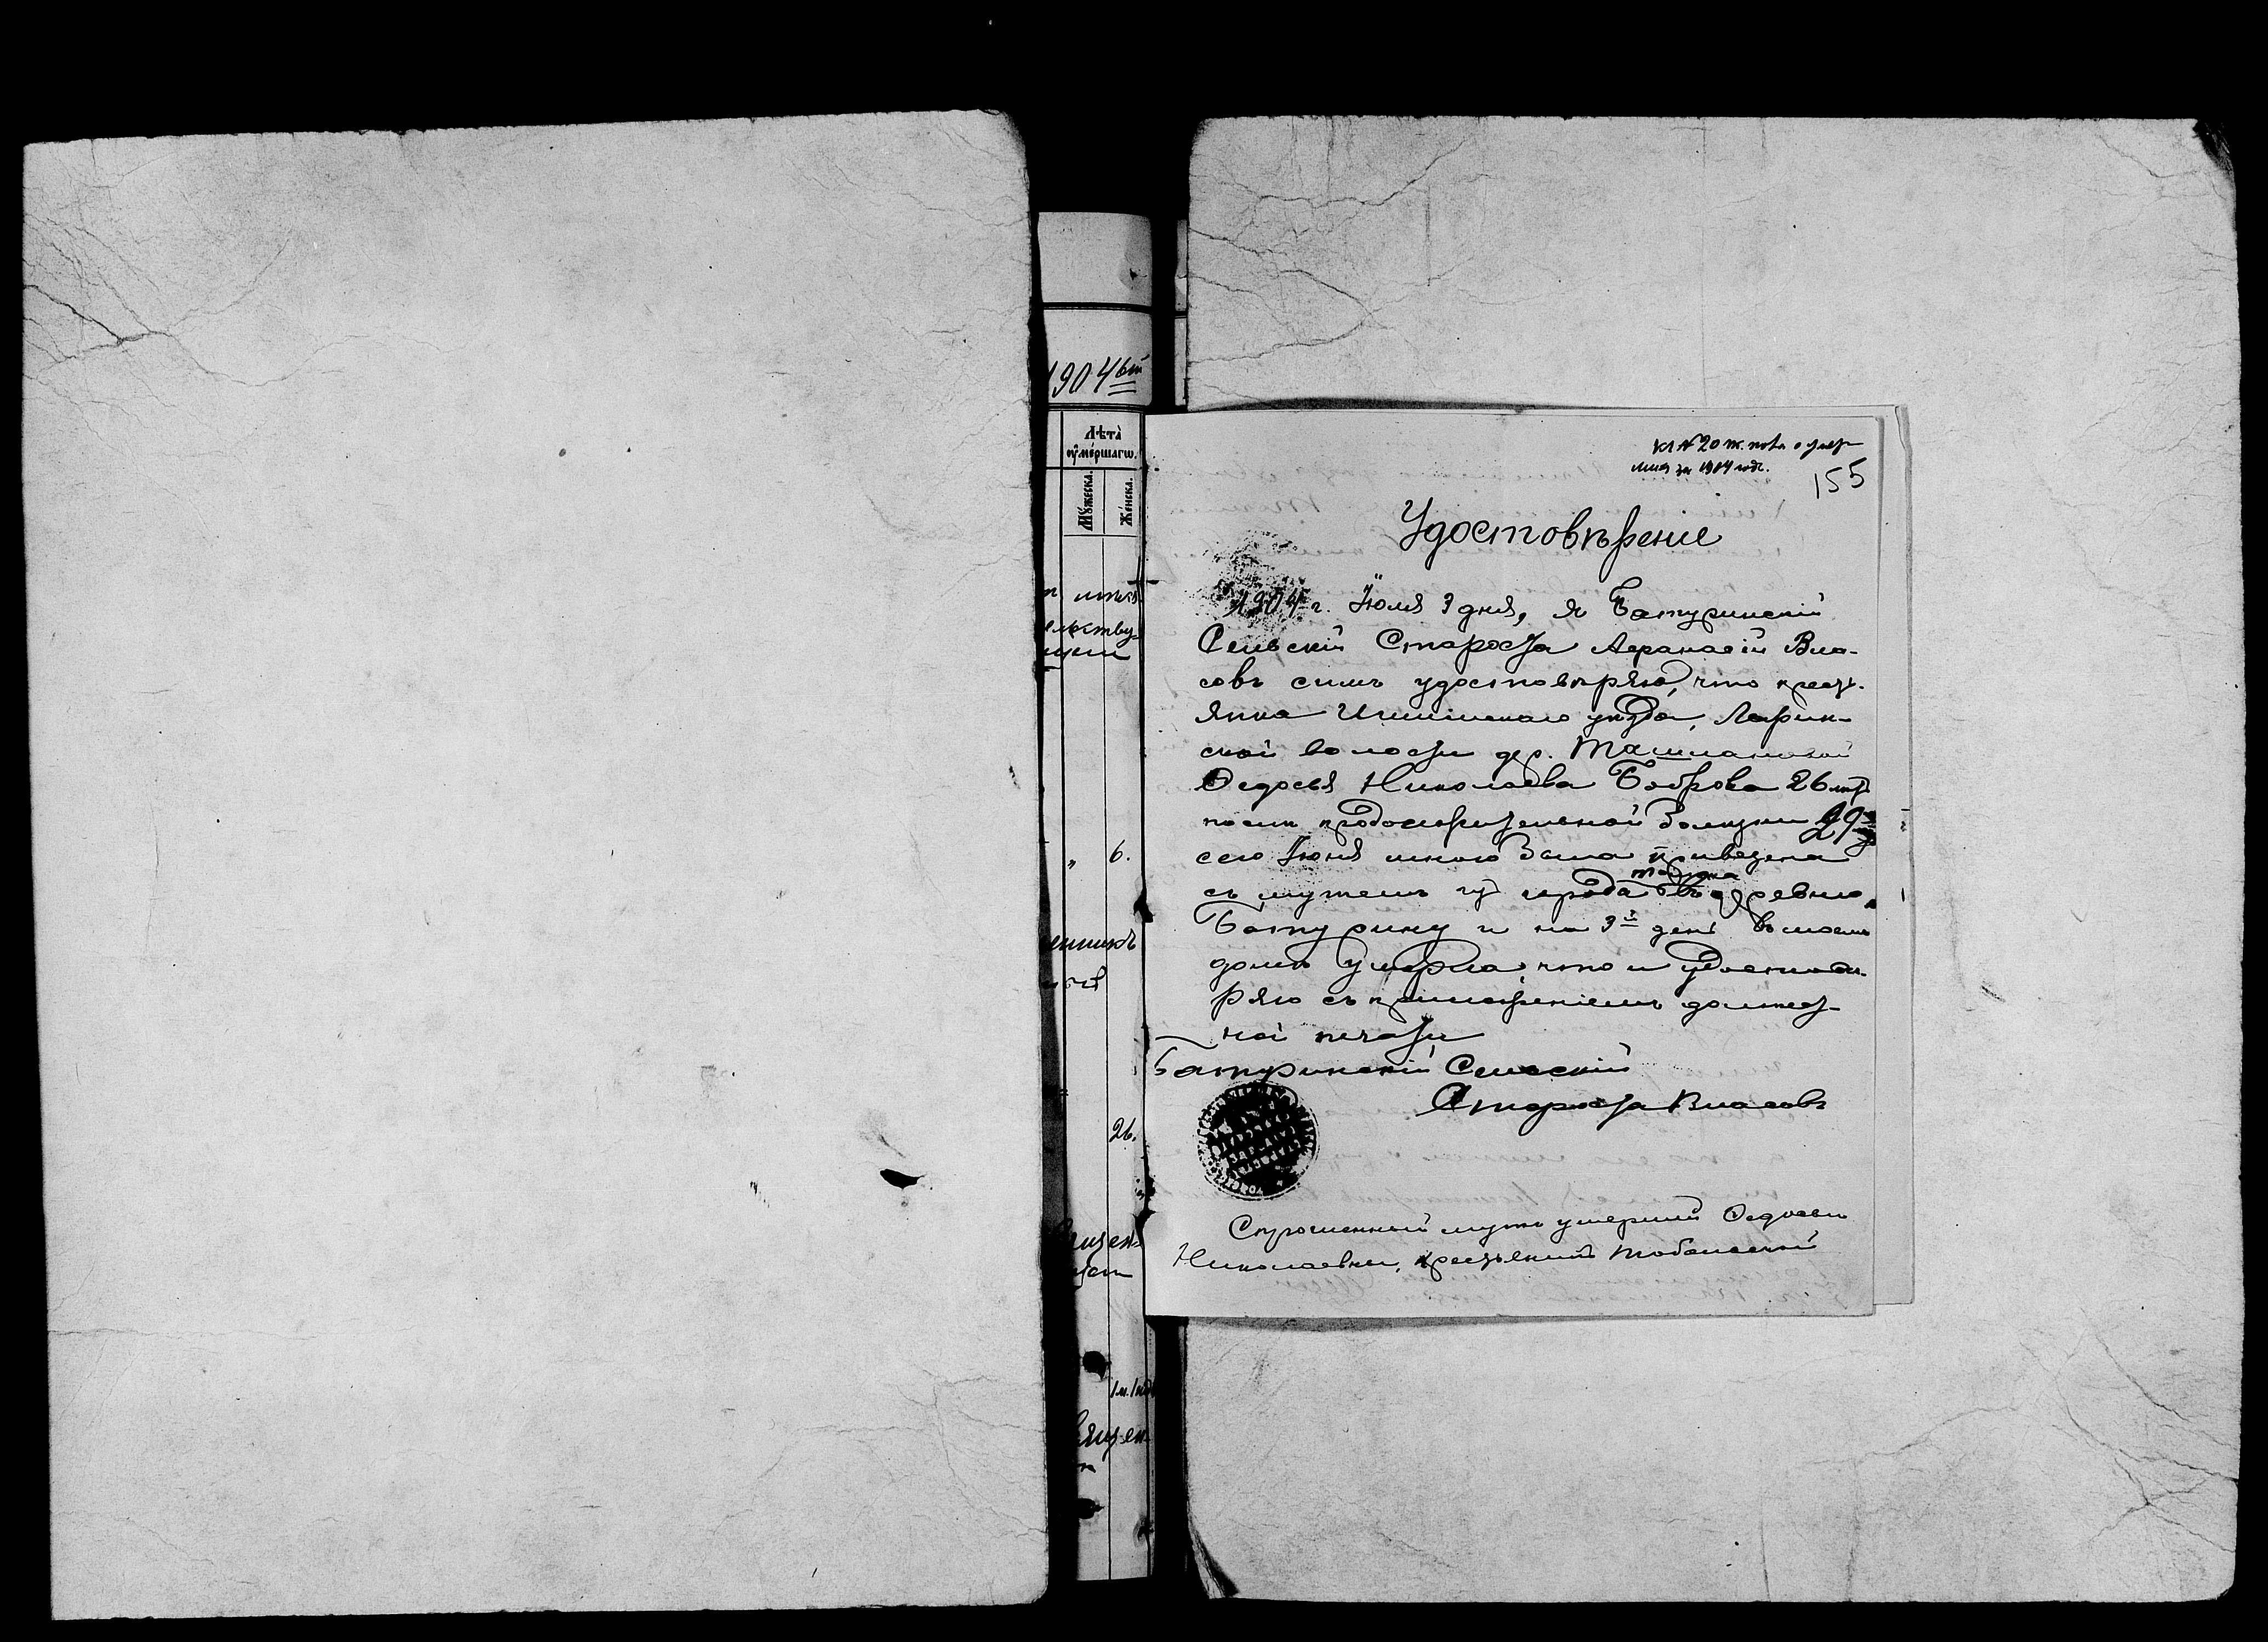 1904ый
Лѣта
оумершагω.
Мꙋжеска.
Женска.
6.
26.
къ № 20 ч. метр. о умер-
шихъ за 1904 годъ.
155
Удостовѣреніе
1904 г. Іюля 3 дня, я Батуринскій
Сельскій Староста Афанасій Вла-
совъ симъ удостовѣряю, что крест-
янка Ишимскаго уѣзда, Ларин-
ской волости дер. Ташлановой
Ѳедосья Николаева Боброва 26 лѣтъ
послѣ продолжительной болѣзни 29
сего Іюня мною была привезена
съ мужемъ изъ города Томска въ деревню
Батурину и на 3й день въ моемъ
домѣ умерла, что и удостовѣ-
ряю съ приложеніемъ должност-
ной печати
Батуринскій Сельскій
Староста Власовъ
Спрошенный мужъ умершей Ѳедосьи
Николаевны, крестьянинъ Тобольской